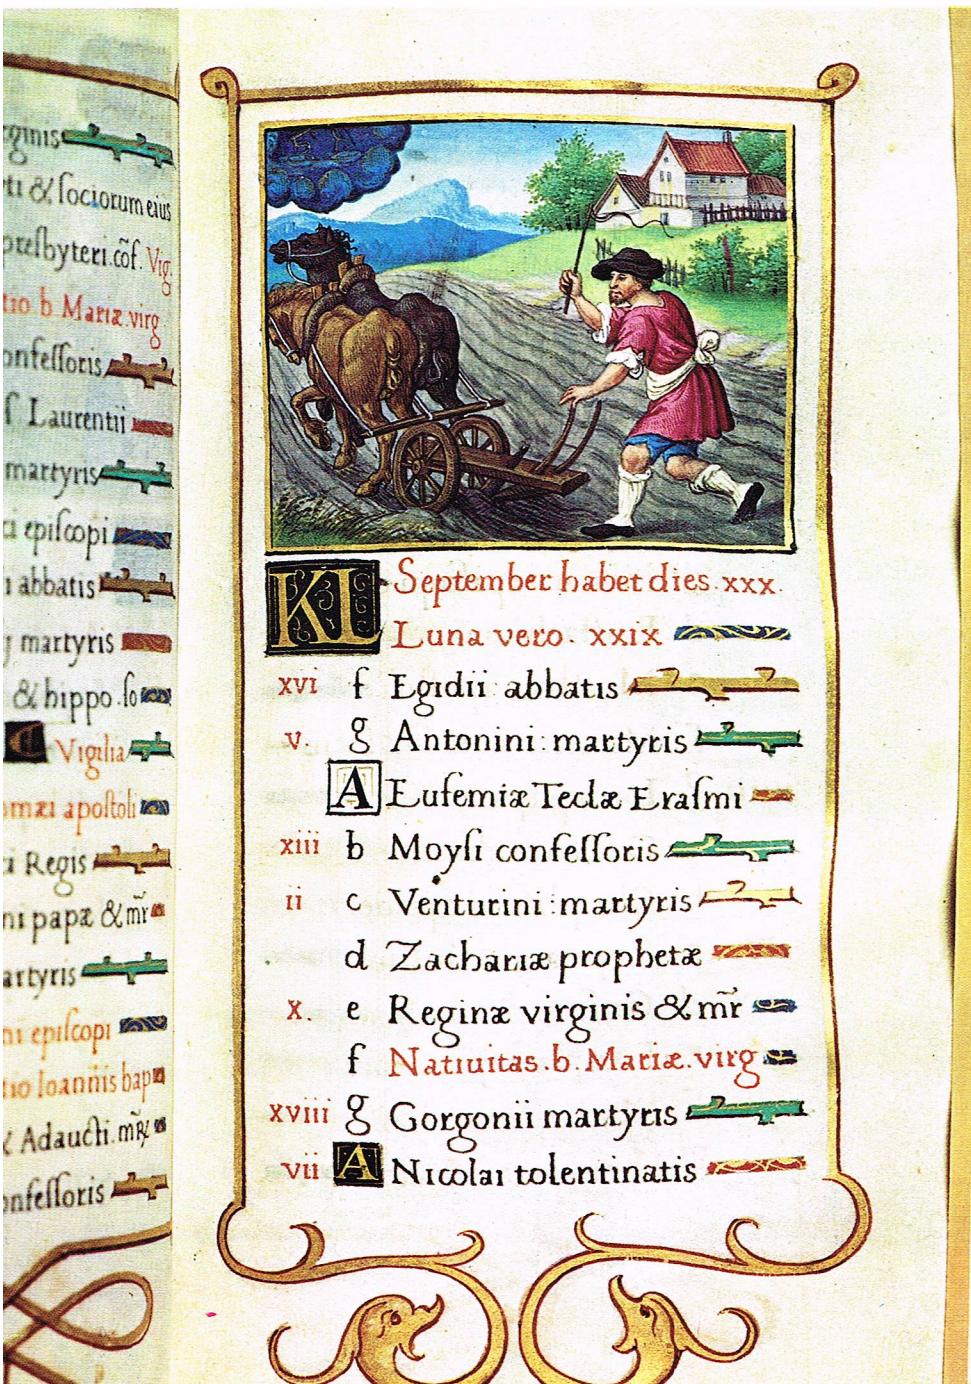 rginis
& ſociorum eius
preſbyteri. cõf. Vig.
tio. b. Mariæ. virg
onfeſſoris
Laurentii
martyris
epiſcopi
abbatis
martyris
& hippo. ſo
Vigilia
omæi apoſtoli
Regis
ni papæ & mr̃
artyris
ni epiſcopi
tio Ioannis bap
Adaucti. mR̃
onfeſſoris
KL September habet dies. xxx.
Luna vero. xxix
xvi f Egidii abbatis
v. g Antonini: martyris
A Eufemiæ Teclæ Eraſmi
xiii b Moyſi confeſſoris
ii c Venturini: martyris
d Zachariæ prophetæ
x. e Reginæ virginis & mr̃
f Natiuitas. b. Mariæ. virg
xviii g Gorgonii martyris
vii A Nicolai tolentinatis